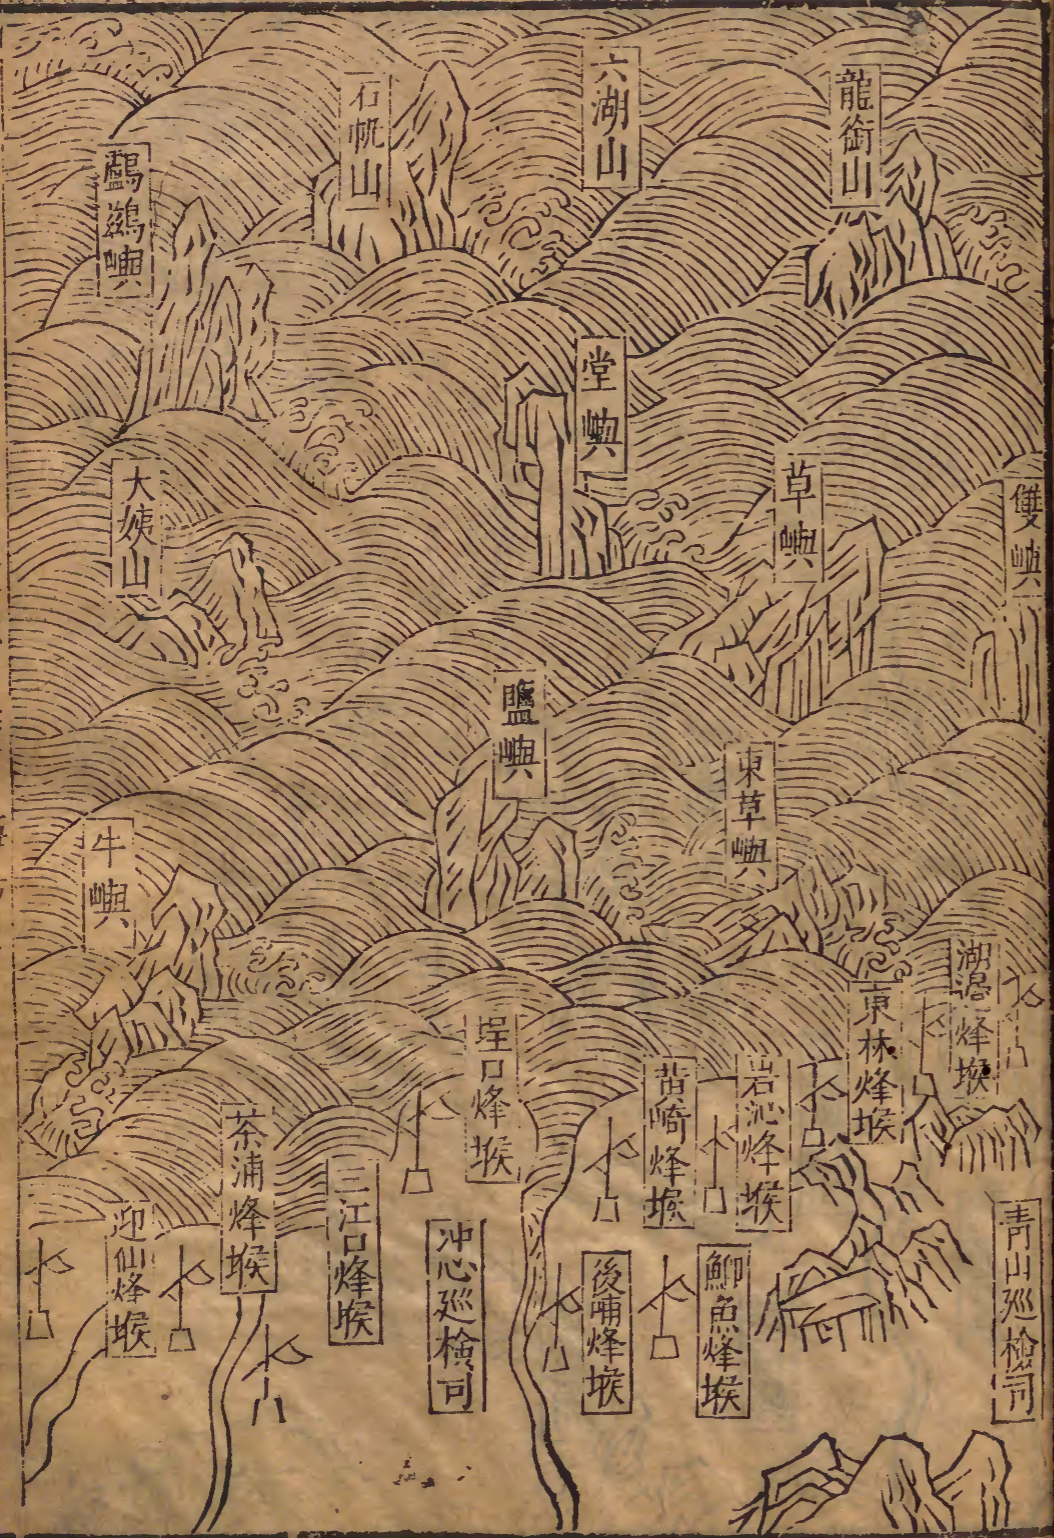 龍銜山
六湖山
石帆山
鸕鷀嶼
堂嶼
雙嶼
草嶼
大姨山
鹽嶼
東草嶼
牛嶼
湖𣻗烽堠
東林烽堠
岩沁烽堠
苗崎烽堠
埕口烽堠
茶浦烽堠
三江口烽堠
迎仙烽堠
青山巡檢司
魚烽堠
後烽堠
沖心巡檢司